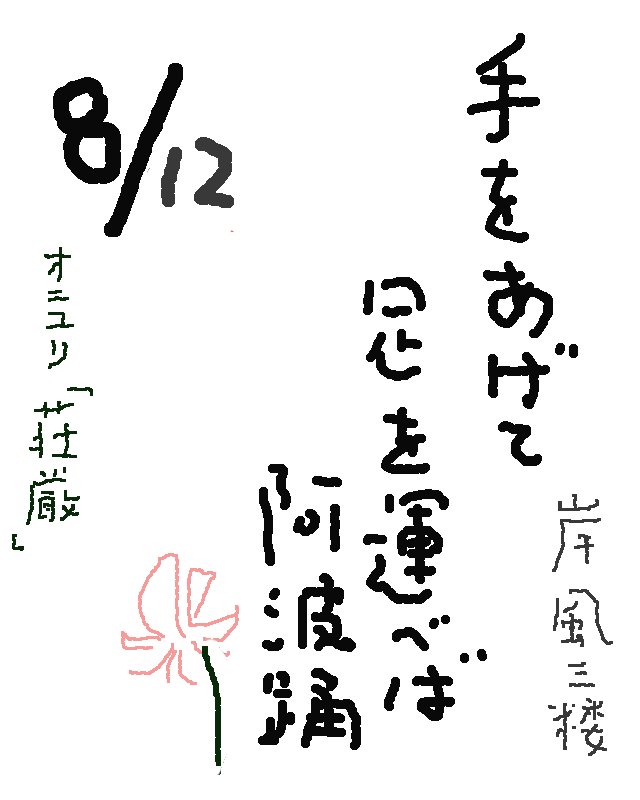 手をあげて
足を運べば
阿波踊
岸風三楼
8/12
オニユリ「荘厳」